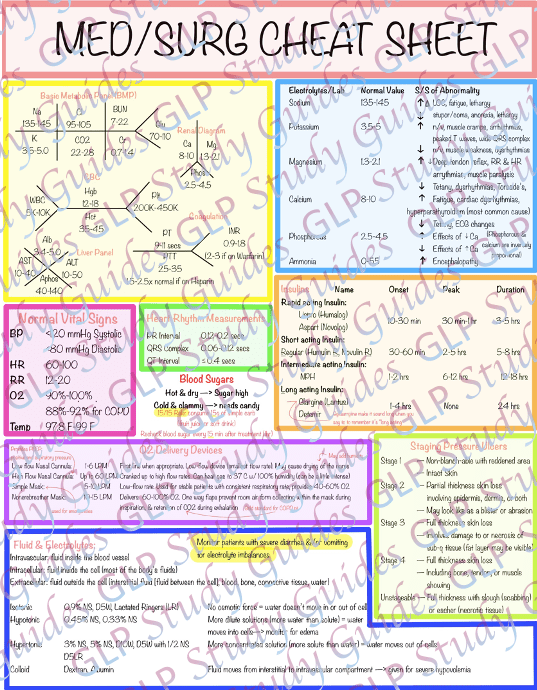 MED/SURG CHEAT SHEET
Basic Metabolic Panel (BMP)
Na
135-145
Cl
95-105
BUN
7-22
Glu
70-110
K
3.5-5.0
CO2
22-28
Crt
0.7-1.4
Renal Diagram
Ca
8-10
Mg
1.3-2.1
Phos
2.5-4.5
CBC
WBC
5K-10K
Hgb
12-18
Hct
35-45
Plt
200K-450K
Coagulation
PT
9-11 secs
INR
0.9-1.8
(2-3 if on Warfarin)
PTT
25-35
1.5-2.5x normal if on Heparin
Liver Panel
Alb
3.4-5.0
AST
10-40
ALT
10-50
Alphos
40-140
Electrolytes/Lab Normal Value S/S of Abnormality
Sodium 135-145 ↑ LOC, fatigue, lethargy
↓ stupor/coma, anorexia, lethargy
Potassium 3.5-5 ↑ m/w, muscle cramps, arrhythmias,
peaked T waves, wide QRS complex
↓ m/w, muscle weakness, dysrhythmias
Magnesium 1.3-2.1 ↑ Deep tendon reflex, RR & HR,
arrythmias, muscle paralysis
↓ Tetany, dysrhythmias, Torsade's,
Calcium 8-10 ↑ Fatigue, cardiac dysrhythmias,
hyperparathyroidism (most common cause)
↓ Tetany, ECG changes
Phosphorous 2.5-4.5 ↑ Effects of ↓Ca (Phosphorous &
↓ Effects of ↑Ca calcium are inversely
proportional)
Ammonia 0-55 ↑ Encephalopathy
Normal Vital Signs
BP <120 mmHg Systolic
<80 mmHg Diastolic
HR 60-100
RR 12-20
O2 90%-100%
88%-92% for COPD
Temp 97.8 F-99 F
Heart Rhythm Measurements
PR Interval 0.12-0.2 sec
QRS Complex 0.06-0.12 secs
QT Interval ≤ 0.4 secs
Blood Sugars
Hot & dry —> Sugar high
Cold & clammy —> needs candy
15/15 Rule
Recheck blood sugar every 15 min after treatment
Insulins Name Onset Peak Duration
Rapid acting Insulin:
Lispro (Humalog) 10-30 min 30 min-1 hr 3-5 hrs
Aspart (Novolog)
Short acting Insulin:
Regular (Humulin R, Novolin R) 30-60 min 2-5 hrs 5-8 hrs
Intermediate acting Insulin:
NPH 1-2 hrs 6-12 hrs 12-18 hrs
Long acting Insulin:
Glargine (Lantus) 1-4 hrs None 24 hrs
Detemir
O2 Delivery Devices
Low flow Nasal Cannula 1-6 LPM First line when appropriate. Low flow device (smallest flow rate). May cause drying of the nose
High Flow Nasal Cannula Up to 60 LPM Cranked up to high flow rates (can heat gas to 37 C w/ 100% humidity (can be a little intense)
Simple Mask 5-10 LPM Low flow rate. Used for stable patients with consistent respiratory rate, provides 40-60% O2
Nonrebreather Mask 10-15 LPM Delivers 60-100% O2. One way flaps prevent room air from collecting within the mask during
inspiration, & retention of CO2 during exhalation
Staging Pressure Ulcers
Stage 1 — Non-blanchable with reddened area
Intact Skin
Stage 2 — Partial thickness skin loss
involving epidermis, dermis, or both
— May look like a blister or abrasion
Stage 3 — Full thickness skin loss
— Involves damage to or necrosis of
sub-q tissue (fat layer may be visible)
Stage 4 — Full thickness skin loss
— Including bone, tendon, or muscle
showing
Unstageable — Full thickness with slough (scabbing)
or eschar (necrotic tissue)
Fluid & Electrolytes:
Monitor patients with severe diarrhea &/or vomiting
for electrolyte imbalances
Intravascular: fluid inside the blood vessel
Intracellular: fluid inside the cell (most of the body's fluids)
Extracellular: fluid outside the cell [interstitial fluid (fluid between the cell), blood, bone, connective tissue, water]
Isotonic 0.9% NS, D5W, Lactated Ringers (LR) No osmotic force = water doesn't move in or out of cell
Hypotonic 0.45% NS, 0.33% NS More dilute solutions (more water than solute) = water
moves into cells —> monitor for edema
Hypertonic 3% NS, 5% NS, D10W, D5W with 1/2 NS More concentrated solution (more solute than water) = water moves out of cells
D5LR
Colloid Dextran, Albumin Fluid moves from interstitial to intravascular compartment —> given for severe hypovolemia
GLP Study Guides